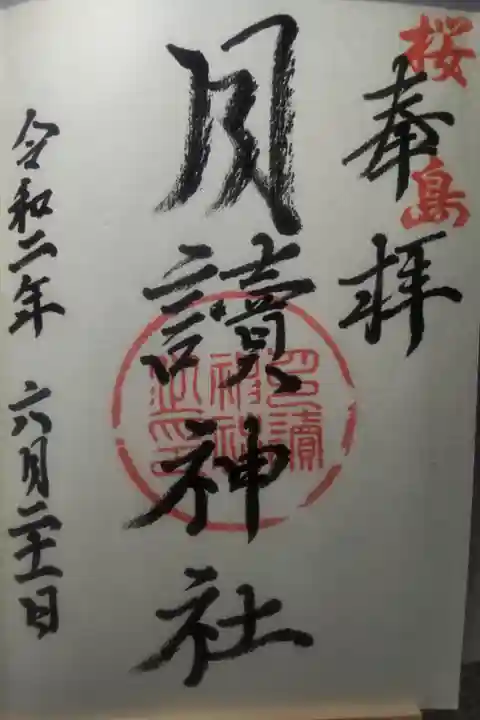 桜島
奉拝
月讀神社
月讀神社之印
令和二年 六月二十一日